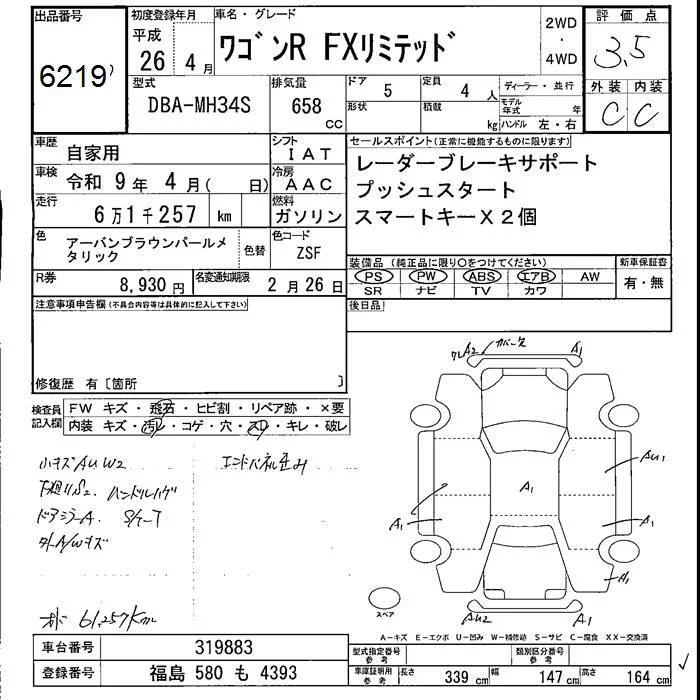 出品番号
6219
初度登録年月
平成
26 4月
車名・グレード
ワゴンR FXリミテッド
2WD
・
4WD
評価点
3.5
外装 内装
C C
型式
DBA-MH34S
排気量
658
CC
ドア
5
定員
4 人
形状
積載
kg
ディーラー・並行
モデル年式 年
ハンドル 左・右
車歴
自家用
シフト
IAT
車検
令和 9年 4月( 日)
冷房
AAC
走行
6万1千257 km
燃料
ガソリン
色
アーバンブラウンパールメタリック
色替
色コード
ZSF
R券
8,930円
名変通知期限
2月26日
セールスポイント(正常に機能するものに限ります)
レーダーブレーキサポート
プッシュスタート
スマートキーX2個
装備品(純正品に限り○をつけてください)
PS PW ABS エアB AW
SR ナビ TV カワ
新車保証書
有・無
後日品
注意事項申告欄(不具合内容等は具体的に記入して下さい)
修復歴 有〔箇所 〕
検査員記入欄
FW キズ・飛石・ヒビ割・リペア跡・×要
内装 キズ・汚レ・コゲ・穴・スレ・キレ・破レ
小キズAUW2
エンドパネル歪み
下廻りS2. ハンドルハゲ
ドアミラーA.
外A/Wキズ
61,257Km
A2
カバー欠
A1
AU1
A1
A1
A1
A1
AU2
A1
スペア
A-キズ E-エクボ U-凹み W-補修跡 S-サビ C-腐食 XX-交換済
車台番号
319883
登録番号
福島 580 も 4393
型式指定番号
参考
類別区分番号
参考
車庫証明用
参考
長さ
339 cm
幅
147 cm
高さ
164 cm